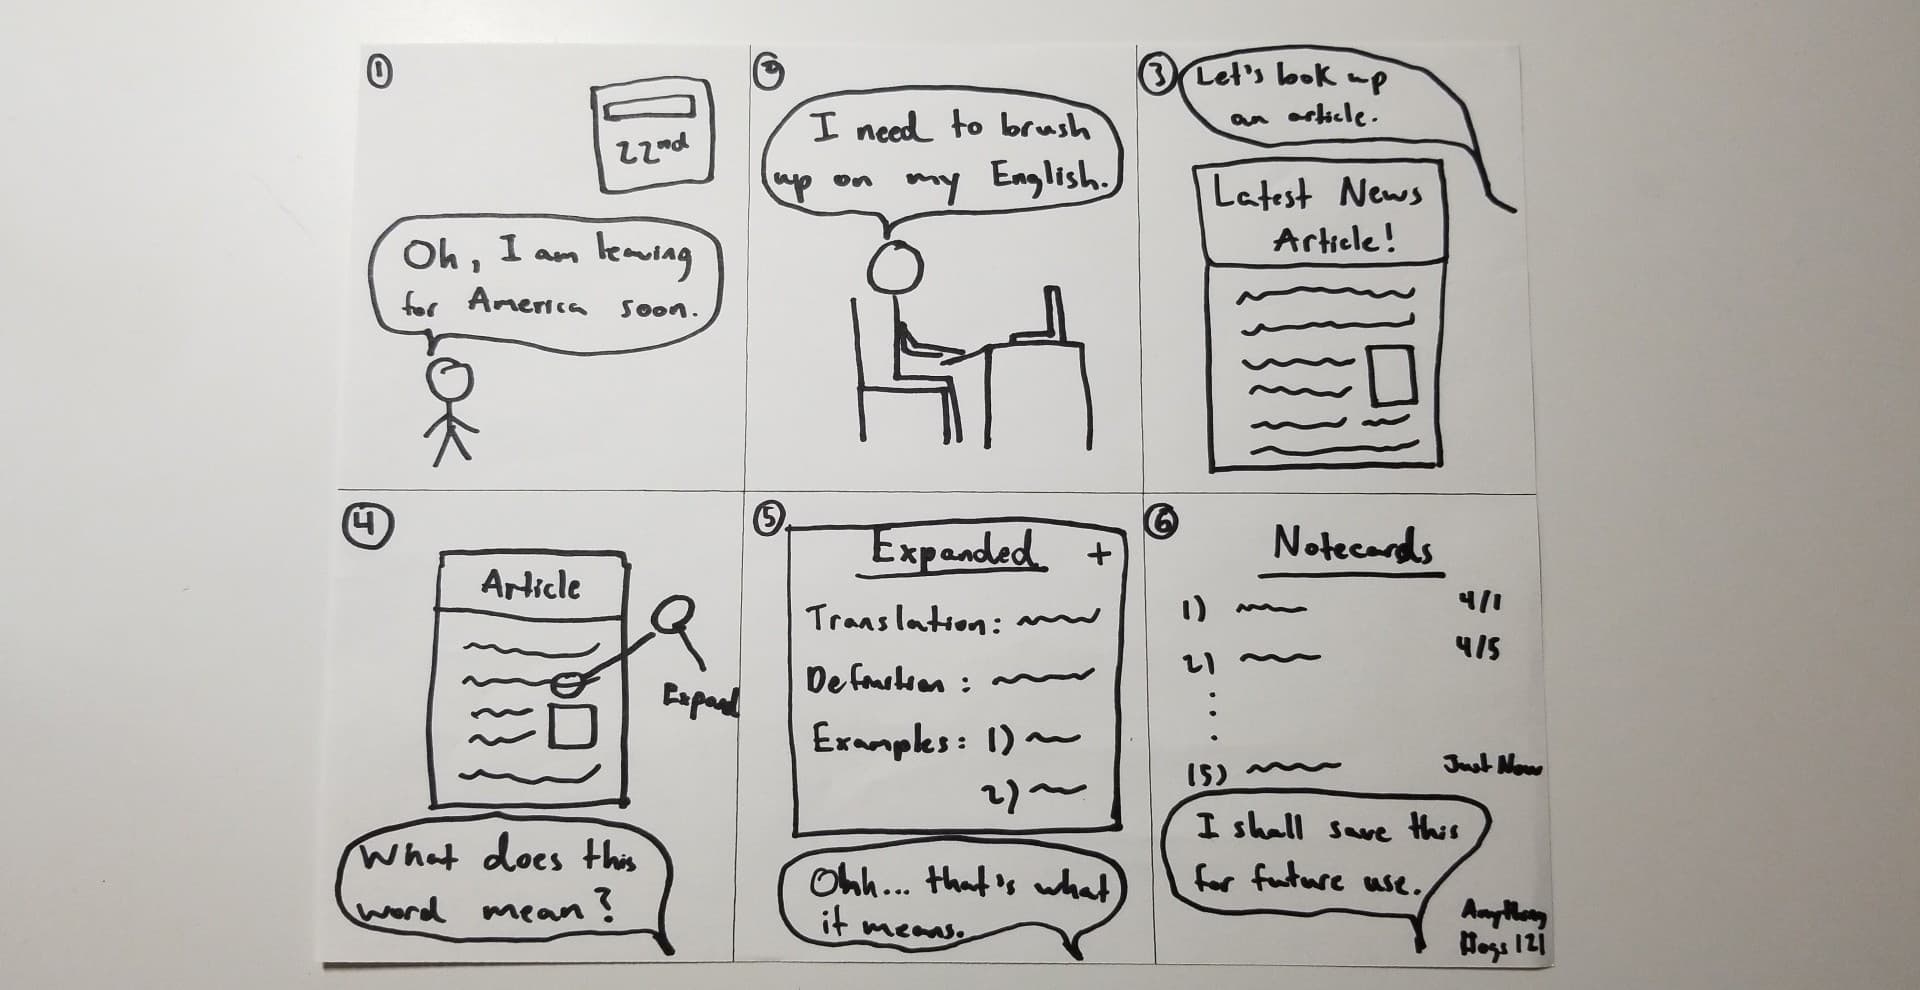 1
22nd
Oh, I am leaving
for America soon.
2
I need to brush
up on my English.
3
Let's look up
an article.
Latest News
Article!
4
Article
Expand
What does this
word mean?
5
Expanded +
Translation:
Definition:
Examples: 1)
2)
Ohh... that's what
it means.
6
Notecards
1) 4/1
2) 4/5
15) Just Now
I shall save this
for future use.
121